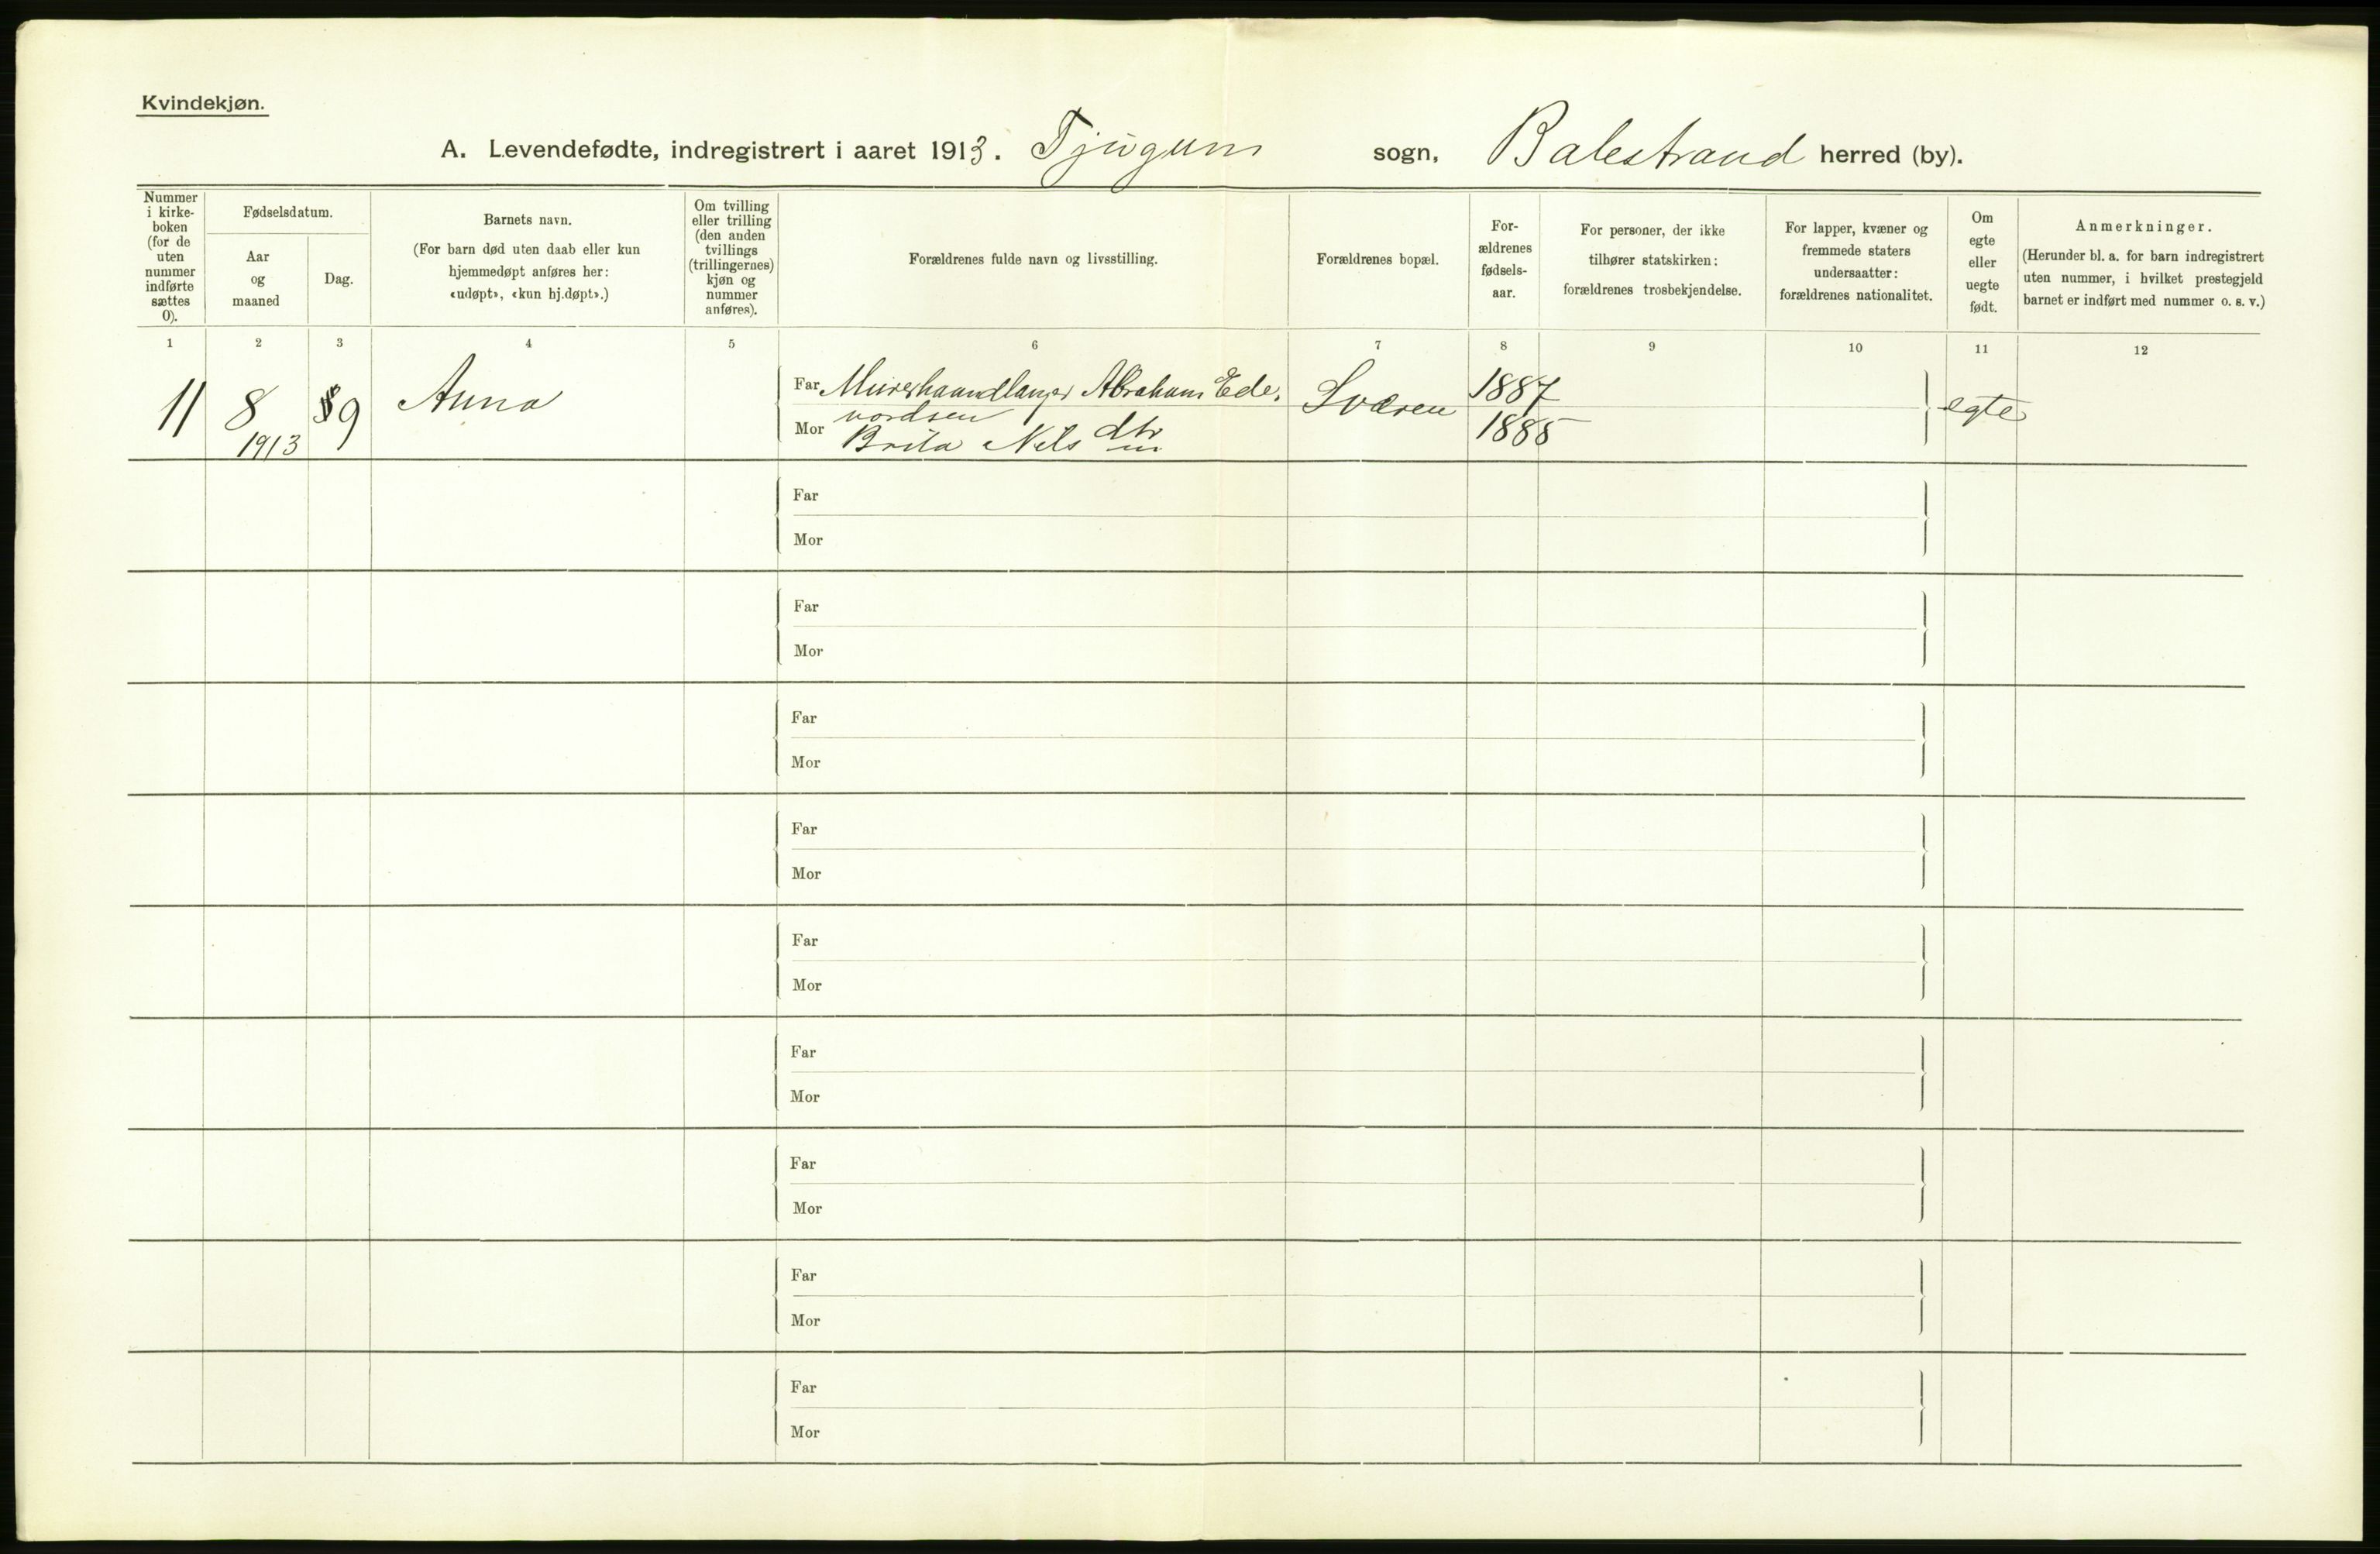 Kvindekjøn.
A. Levendefødte, indregistrert i aaret 1913. Tjugum sogn, Balestrand herred (by).
Nummer i kirke-boken (for de uten nummer indførte sættes 0).
Fødselsdatum.
Aar og maaned
Dag.
Barnets navn.
(For barn død uten daab eller kun
hjemmedøpt anføres her:
«udøpt», «kun hj.døpt».)
Om tvilling
eller trilling
(den anden
tvillings
(trillingernes)
kjøn og
nummer
anføres).
Forældrenes fulde navn og livsstilling.
Forældrenes bopæl.
For-
ældrenes
fødsels-
aar.
For personer, der ikke
tilhører statskirken:
forældrenes trosbekjendelse.
For lapper, kvæner og
fremmede staters
undersaatter:
forældrenes nationalitet.
Om
egte
eller
uegte
født.
Anmerkninger.
(Herunder bl. a. for barn indregistrert
uten nummer, i hvilket prestegjeld
barnet er indført med nummer o. s. v.)
1 2 3 4 5 6 7 8 9 10 11 12
11 8 9 Anna Far Murerhaandlanger Abraham Ede- Sværen 1887 egte
1913 vordsen
Mor Brita Nels dtr 1885
Far
Mor
Far
Mor
Far
Mor
Far
Mor
Far
Mor
Far
Mor
Far
Mor
Far
Mor
Far
Mor